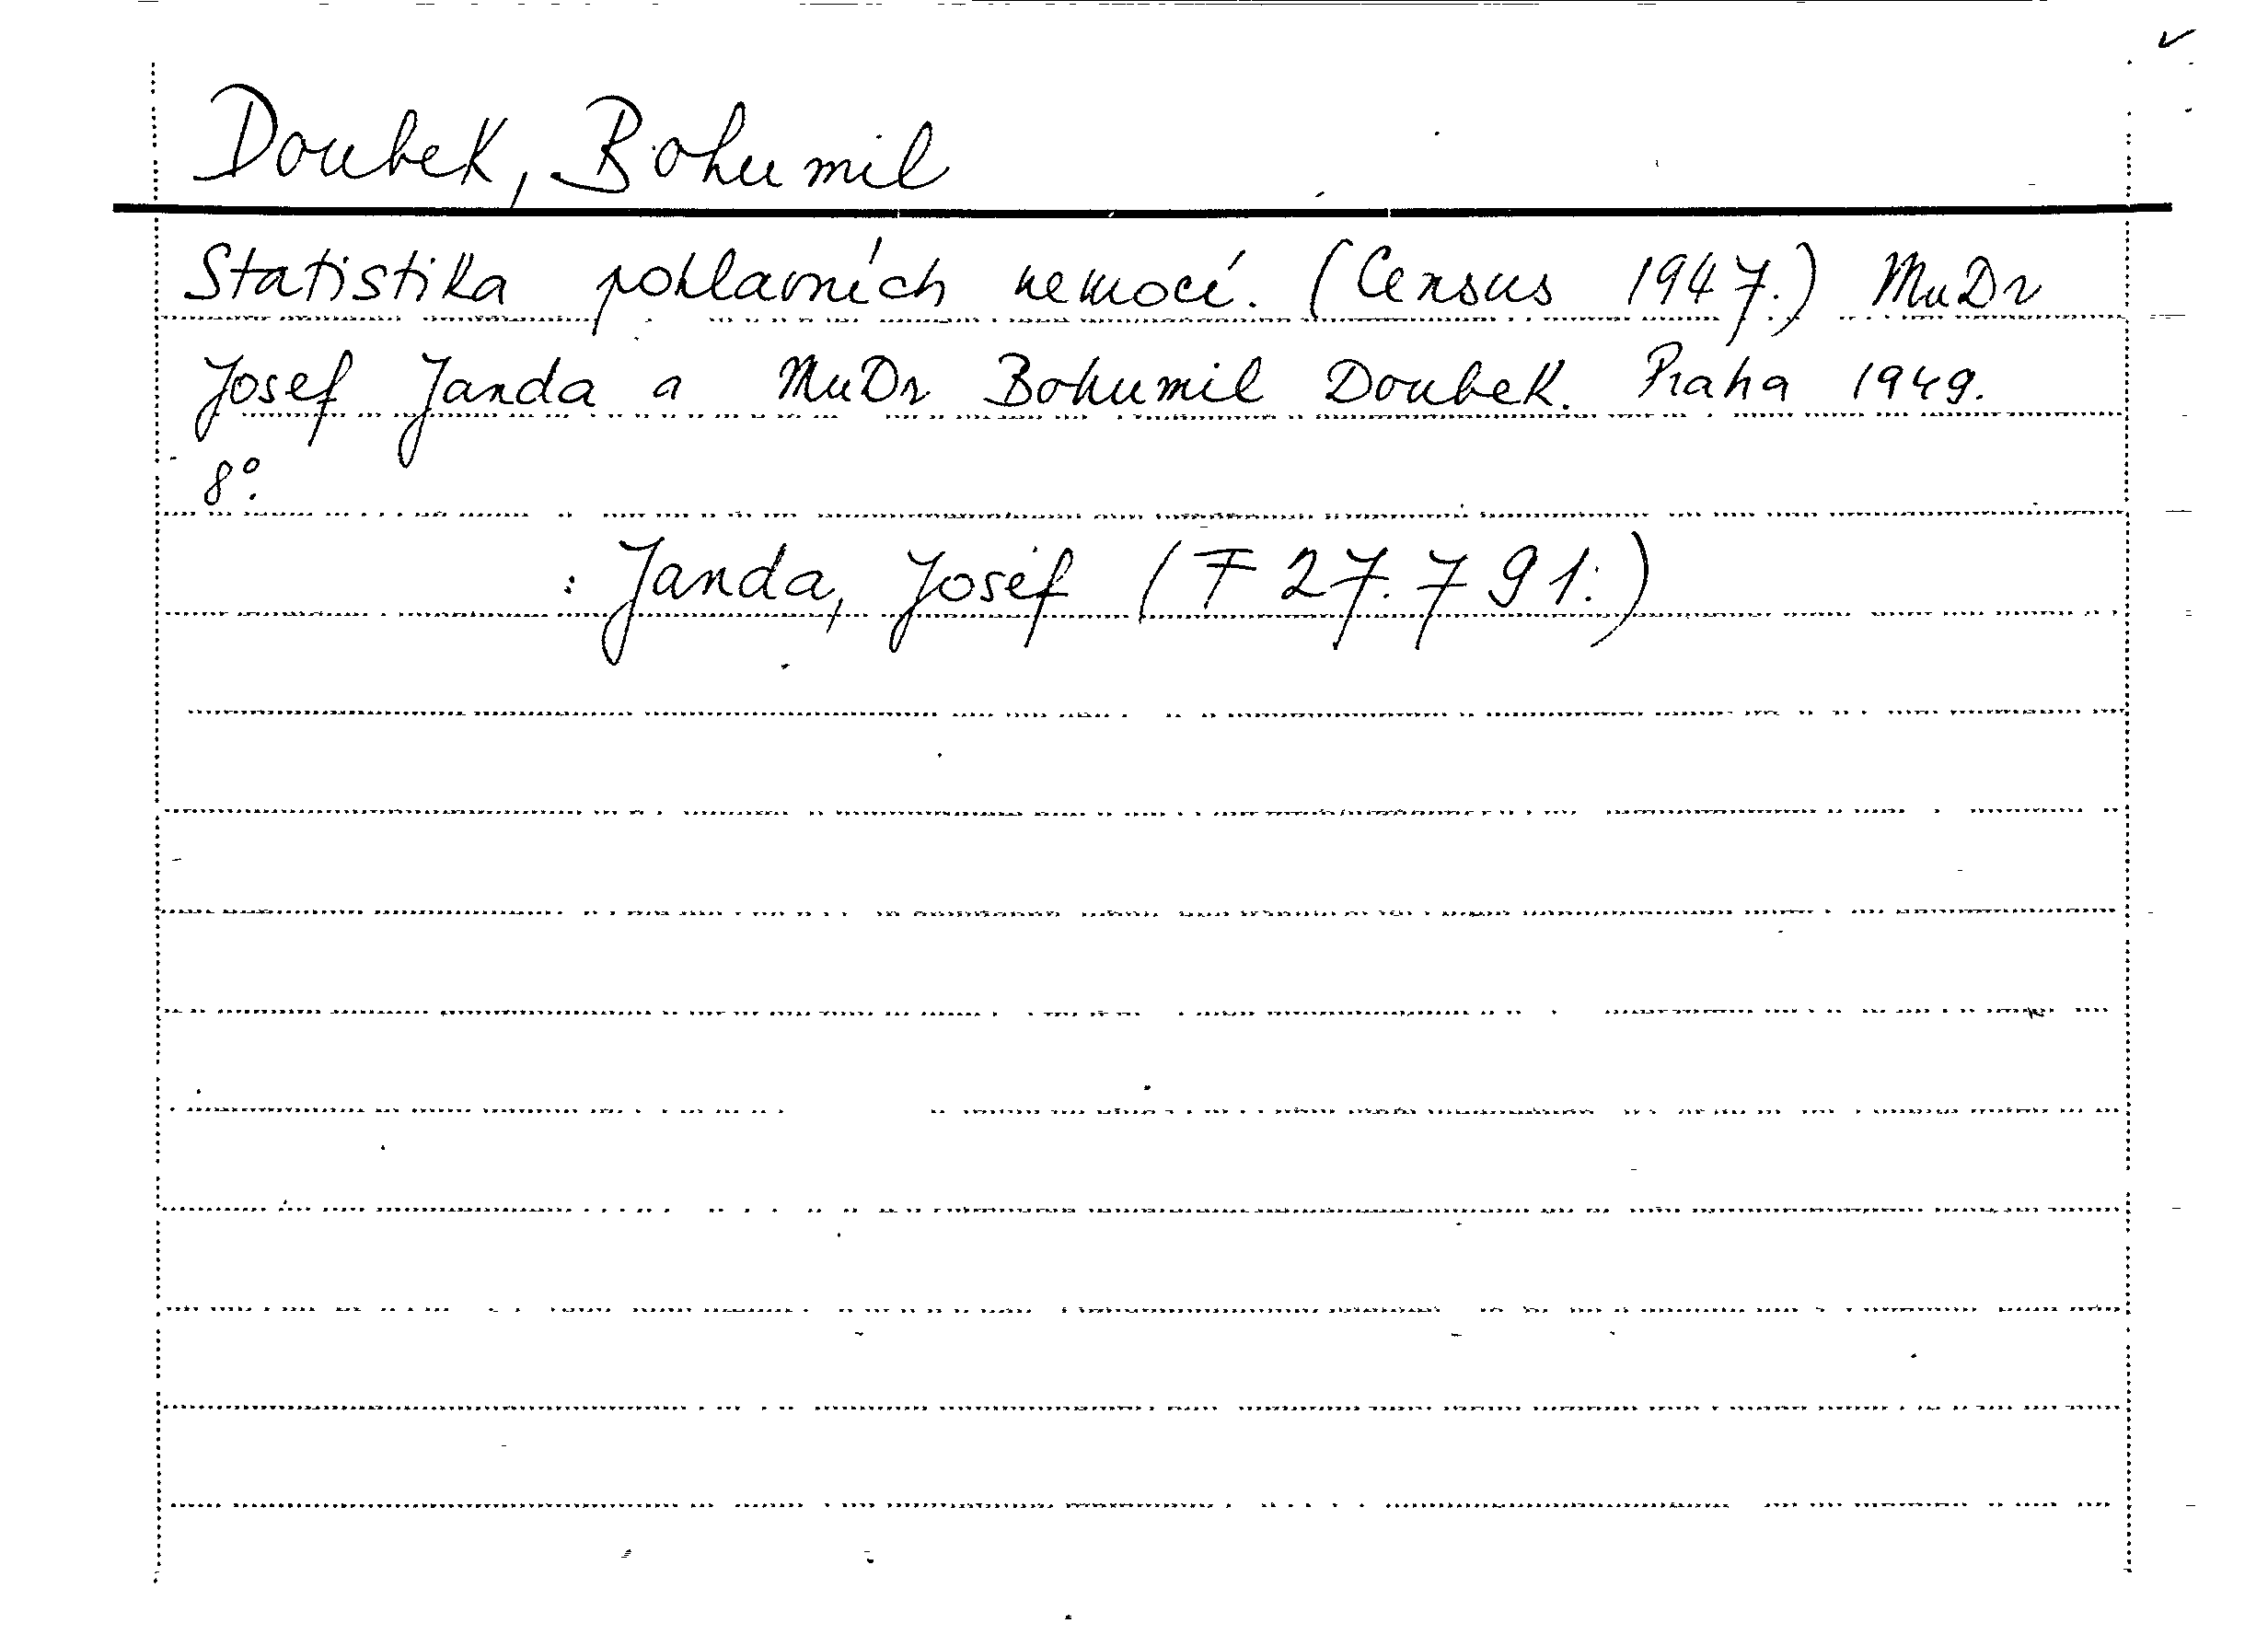 Doubek, Bohumil
Statistika pohlavních nemocí. (Census 1947.) MuDr
Josef Janda a MuDr Bohumil Doubek. Praha 1949.
8°.
: Janda, Josef (F 27.791.)